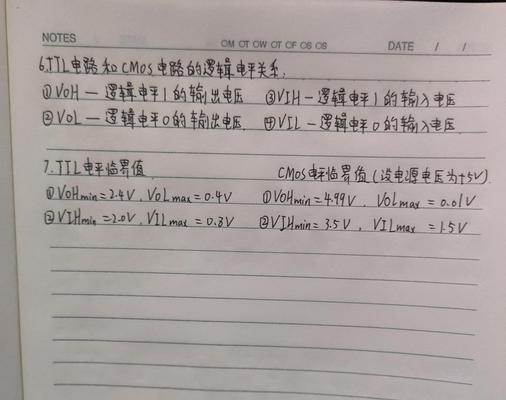 NOTES OM OT OW OT OF OS OS DATE / /
6.TTL电路和CMOS电路的逻辑电平关系:
①VOH — 逻辑电平1的输出电压 ③VIH — 逻辑电平1的输入电压
②VOL — 逻辑电平0的输出电压 ④VIL — 逻辑电平0的输入电压
7.TTL电平临界值 CMOS电平临界值(设电源电压为+5V)
①VOHmin=2.4V,VOLmax=0.4V ①VOHmin=4.99V,VOLmax=0.01V
②VIHmin=2.0V,VILmax=0.8V ②VIHmin=3.5V,VILmax=1.5V